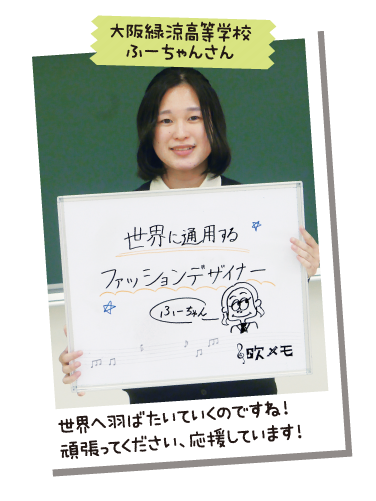 大阪緑涼高等学校
ふーちゃんさん
世界に通用する
ファッションデザイナー
ふーちゃん
吹メモ
世界へ羽ばたいていくのですね!
頑張ってください、応援しています!